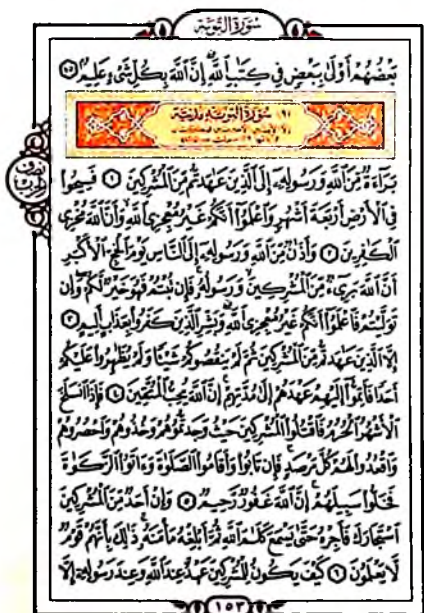 سُورَةُ التَّوْبَة
بَعْضُهُمْ أَوْلَىٰ بِبَعْضٍ فِي كِتَٰبِ ٱللَّهِ إِنَّ ٱللَّهَ بِكُلِّ شَىْءٍ عَلِيمٌ
سورة التوبة مدنية
بَرَآءَةٌ مِّنَ ٱللَّهِ وَرَسُولِهِۦٓ إِلَى ٱلَّذِينَ عَٰهَدتُّم مِّنَ ٱلْمُشْرِكِينَ ١ فَسِيحُوا۟
فِي ٱلْأَرْضِ أَرْبَعَةَ أَشْهُرٍ وَٱعْلَمُوٓا۟ أَنَّكُمْ غَيْرُ مُعْجِزِي ٱللَّهِ وَأَنَّ ٱللَّهَ مُخْزِي
ٱلْكَٰفِرِينَ ٢ وَأَذَٰنٌ مِّنَ ٱللَّهِ وَرَسُولِهِۦٓ إِلَى ٱلنَّاسِ يَوْمَ ٱلْحَجِّ ٱلْأَكْبَرِ
أَنَّ ٱللَّهَ بَرِيٓءٌ مِّنَ ٱلْمُشْرِكِينَ وَرَسُولُهُۥ فَإِن تُبْتُمْ فَهُوَ خَيْرٌ لَّكُمْ وَإِن
تَوَلَّيْتُمْ فَٱعْلَمُوٓا۟ أَنَّكُمْ غَيْرُ مُعْجِزِي ٱللَّهِ وَبَشِّرِ ٱلَّذِينَ كَفَرُوا۟ بِعَذَابٍ أَلِيمٍ ٣
إِلَّا ٱلَّذِينَ عَٰهَدتُّم مِّنَ ٱلْمُشْرِكِينَ ثُمَّ لَمْ يَنقُصُوكُمْ شَيْـًٔا وَلَمْ يُظَٰهِرُوا۟ عَلَيْكُمْ
أَحَدًا فَأَتِمُّوٓا۟ إِلَيْهِمْ عَهْدَهُمْ إِلَىٰ مُدَّتِهِمْ إِنَّ ٱللَّهَ يُحِبُّ ٱلْمُتَّقِينَ ٤ فَإِذَا ٱنسَلَخَ
ٱلْأَشْهُرُ ٱلْحُرُمُ فَٱقْتُلُوا۟ ٱلْمُشْرِكِينَ حَيْثُ وَجَدتُّمُوهُمْ وَخُذُوهُمْ وَٱحْصُرُوهُمْ
وَٱقْعُدُوا۟ لَهُمْ كُلَّ مَرْصَدٍ فَإِن تَابُوا۟ وَأَقَامُوا۟ ٱلصَّلَوٰةَ وَءَاتَوُا۟ ٱلزَّكَوٰةَ
فَخَلُّوا۟ سَبِيلَهُمْ إِنَّ ٱللَّهَ غَفُورٌ رَّحِيمٌ ٥ وَإِنْ أَحَدٌ مِّنَ ٱلْمُشْرِكِينَ
ٱسْتَجَارَكَ فَأَجِرْهُ حَتَّىٰ يَسْمَعَ كَلَٰمَ ٱللَّهِ ثُمَّ أَبْلِغْهُ مَأْمَنَهُۥ ذَٰلِكَ بِأَنَّهُمْ قَوْمٌ
لَّا يَعْلَمُونَ ٦ كَيْفَ يَكُونُ لِلْمُشْرِكِينَ عَهْدٌ عِندَ ٱللَّهِ وَعِندَ رَسُولِهِۦٓ إِلَّا
١٥٣